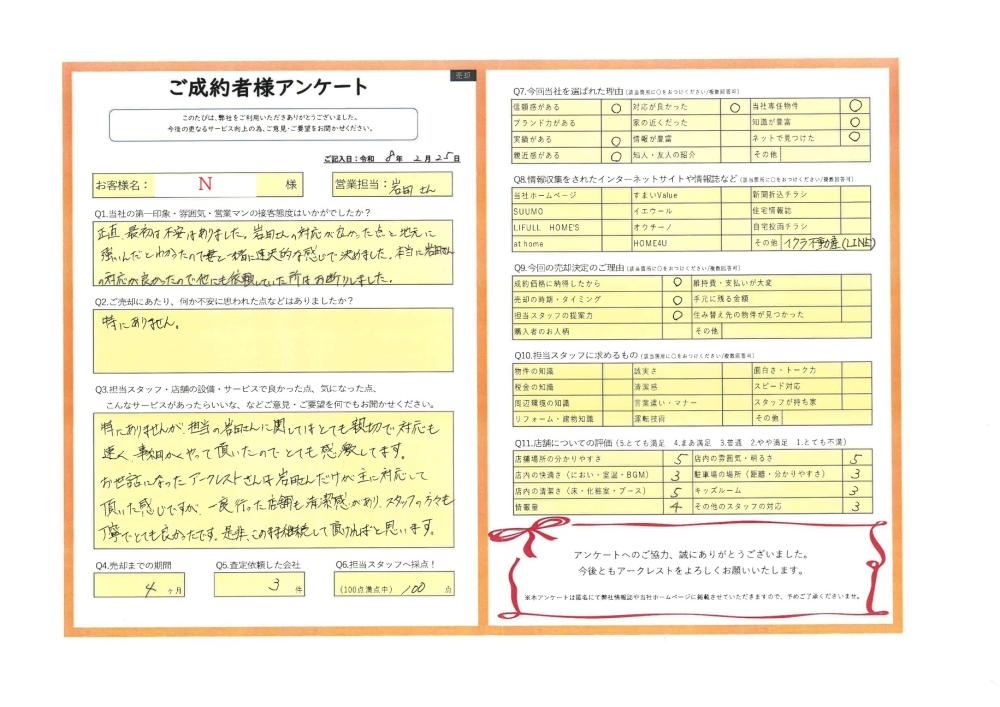 売却
ご成約者様アンケート
このたびは、弊社をご利用いただきありがとうございました。
今後の更なるサービス向上の為、ご意見・ご要望をお聞かせください。
ご記入日：令和 8年 2月 25日
お客様名： N 様
営業担当：岩田さん
Q1.当社の第一印象・雰囲気・営業マンの接客態度はいかがでしたか？
正直、最初は不安はありました。岩田さんの対応が良かった点と地元に
強いんだとわかったので妻と一緒に運命的な感じで決めました。本当に岩田さん
の対応が良かったので他にも依頼していた所はお断りしました。
Q2.ご売却にあたり、何か不安に思われた点などはありましたか？
特にありません。
Q3.担当スタッフ・店舗の設備・サービスで良かった点、気になった点、
こんなサービスがあったらいいな、などご意見・ご要望を何でもお聞かせください。
特にありませんが、担当の岩田さんに関してはとても親切で対応も
速く、事細かくやって頂いたのでとても感激してます。
お世話になったアークレストさんは岩田さんだけが主に対応して
頂いた感じですが、一度行った店舗も清潔感があり、スタッフのうも
丁寧でとても良かったです。是非、この持継続して頂ければと思います。
Q4.売却までの期間
4 ヶ月
Q5.査定依頼した会社
3 件
Q6.担当スタッフへ採点！
(100点満点中) 100 点
Q7.今回当社を選ばれた理由(該当箇所に○をおつけください/複数回答可)
信頼感がある ○ 対応が良かった ○ 当社専任物件 ○
ブランド力がある 家の近くだった 知識が豊富 ○
実績がある ○ 情報が豊富 ネットで見つけた ○
親近感がある ○ 知人・友人の紹介 その他
Q8.情報収集をされたインターネットサイトや情報誌など(該当箇所に○をおつけください/複数回答可)
当社ホームページ すまいValue 新聞折込チラシ
SUUMO イエウール 住宅情報誌
LIFULL HOME'S オウチーノ 自宅投函チラシ
at home HOME4U その他 イクラ不動産(LINE)
Q9.今回の売却決定のご理由(該当箇所に○をおつけください/複数回答可)
成約価格に納得したから ○ 維持費・支払いが大変
売却の時期・タイミング ○ 手元に残る金額
担当スタッフの提案力 ○ 住み替え先の物件が見つかった
購入者のお人柄 その他
Q10.担当スタッフに求めるもの(該当箇所に○をおつけください/複数回答可)
物件の知識 誠実さ 面白さ・トーク力
税金の知識 清潔感 スピード対応
周辺環境の知識 言葉遣い・マナー スタッフが持ち家
リフォーム・建物知識 運転技術 その他
Q11.店舗についての評価 (5.とても満足 4.まあ満足 3.普通 2.やや満足 1.とても不満)
店舗場所の分かりやすさ 5 店内の雰囲気・明るさ 5
店内の快適さ(におい・室温・BGM) 3 駐車場の場所(距離・分かりやすさ) 3
店内の清潔さ(床・化粧室・ブース) 5 キッズルーム 3
情報量 4 その他のスタッフの対応 3
アンケートへのご協力、誠にありがとうございました。
今後ともアークレストをよろしくお願いいたします。
※本アンケートは匿名にて弊社情報誌や当社ホームページに掲載させていただきますので、予めご了承くださいませ。